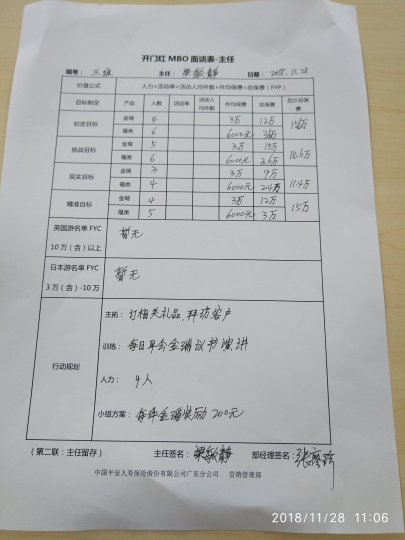 开门红 MBO 面谈表-主任
组号： 三组 主任： 梁敏静 日期： 2018.11.28
价值公式 人力×活动率×活动人均件数×件均保费=总保费(FYP)
目标制定 产品 人数 活动率 活动人均件数 件均保费 总保费 合计总保费
初定目标 金瑞 4 3万 12万
福类 6 6000元
挑战目标 金瑞 5 3万 15万 18.6万
福类 6 6000元 3.6万
现实目标 金瑞 3 3万 9万 11.4万
福类 4 6000元 2.4万
精准目标 金瑞 4 3万 12万 15万
福类 5 6000元 3万
英国游名单 FYC 10万(含)以上 暂无
日本游名单 FYC 3万(含)-10万 暂无
行动规划
主拓： 订相关礼品,拜访客户
训练： 每日早会金瑞议书演讲
人力： 9人
小组方案： 每件金瑞奖励200元
(第二联：主任留存) 主任签名： 梁敏静 部经理签名：
中国平安人寿保险股份有限公司广东分公司 营销管理部
2018/11/28 11:06